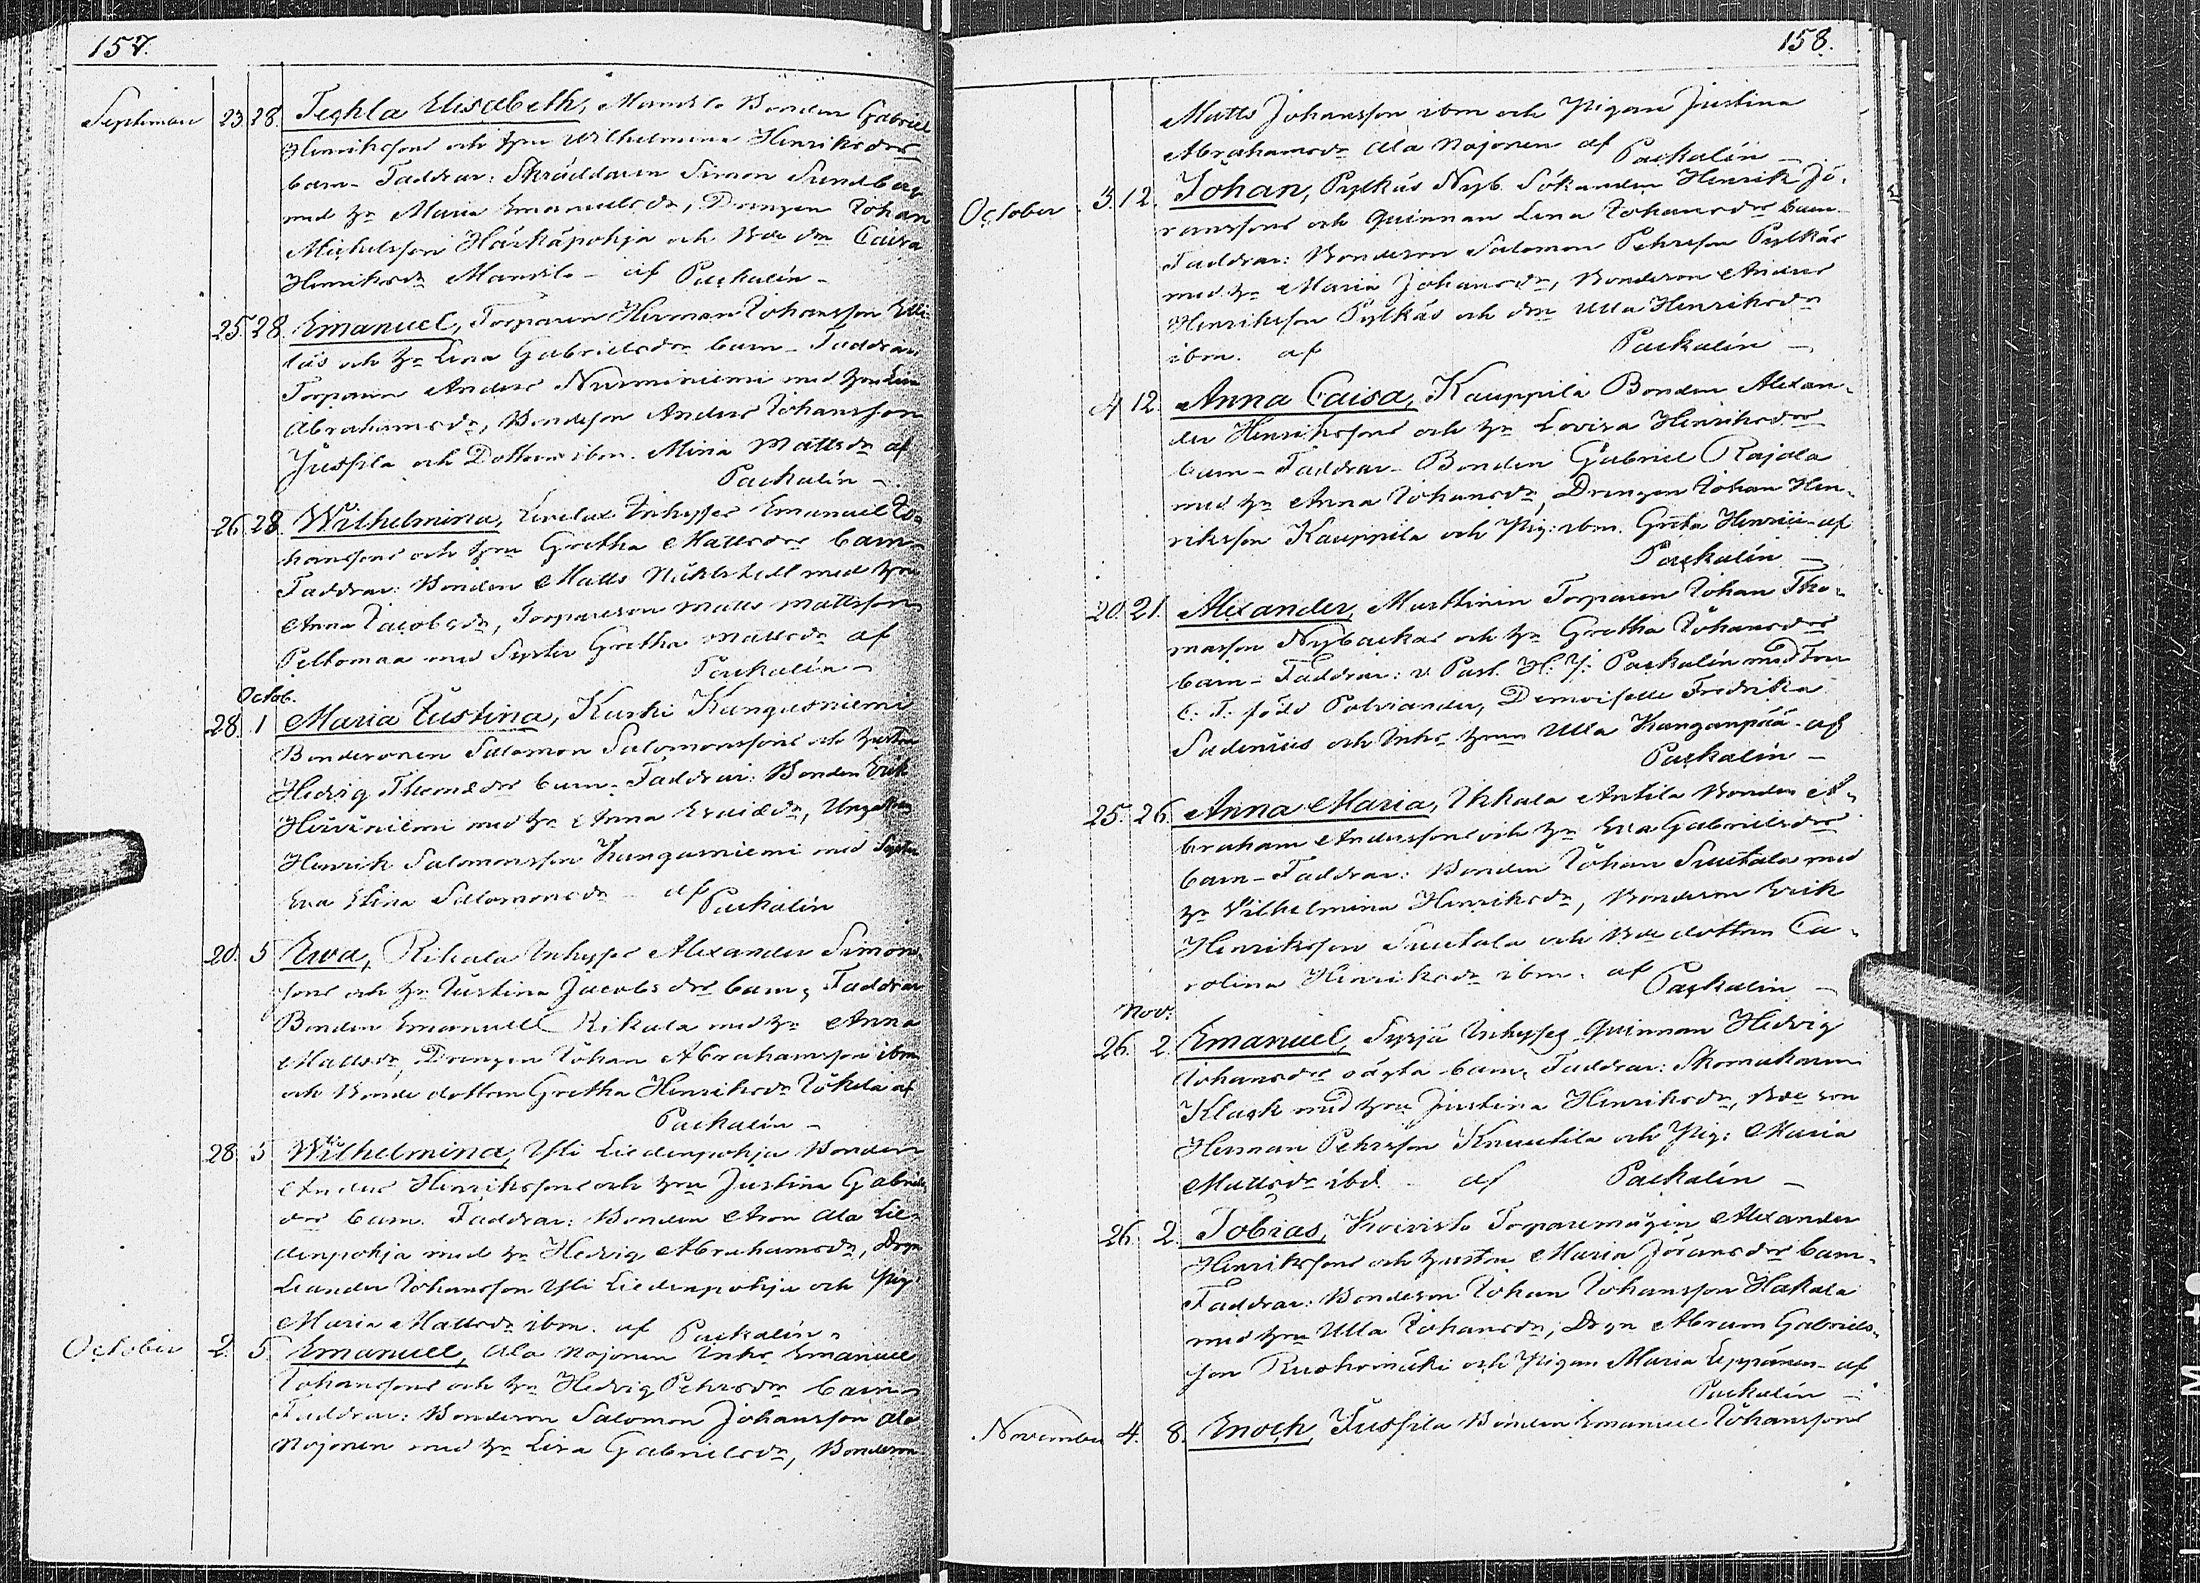 157.
September 23. 28. Teghla Elisabeth, Mansila Bonden Gabriel
Henrikssons och hru Wilhelmina Henriksdrs
barn. Faddrar: Skräddaren Simon Sundberg
med hu Maria Emanuelsdr, Drengen Johan
Michelsson Härkäpohja och Bde dtr Caisa
Henriksdr Mansila - af Packalén -
25. 28. Emanuel, Torparen Herman Johansson
och hu Lena Gabrielsdrs barn - Faddrar:
Torparen Anders Nurminiemi med hru Lena
Abrahamsdr, Bondeson Anders Johansson
Jussila och Dottren ibm. Mina Mattsdr af
Packalén -
26. 28. Wilhelmina, Inhyses Emanuel Jo-
hanssons och hru Gretha Mattsdrs barn -
Faddrar: Bonden Matts med hru
Anna Jacobsdr, Torpareson Matts Mattsson
Peltomaa med Syster Gretha Mattsdr af
Packalén -
Octob.
28. 1 Maria Justina, Kurki Kangasniemi
Bondesonen Salomon Salomonssons och hustru
Hedvig Thomædrs barn. Faddrar: Bonden Erik
med hu Anna Ericidr, Ungkarlen
Henrik Salomonsson Kangasniemi med Syster
Eva Stina Salomonsdr af Packalén
20. 5 Ewa, Rikala Inhyses Alexander Simons-
sons och hu Justina Jacobsdrs barn, Faddrar
Bonden Emanuel Rikala med hu Anna
Mattsdr, Drengen Johan Abrahamsson ibm
och Bonde dottren Gretha Henriksdr Jokela af
Packalén -
28. 5 Wilhelmina, Yli Liedenpohja Bonden
Anders Henrikssons och hru Justina Gabriels
drs barn. Faddrar: Bonden Aron Ala Lie-
denpohja med hu Hedvig Abrahamsdr, Drgn
Leander Johansson Yli Liedenpohja och Pig
Maria Mattsdr ibm. af Packalén -
October 2. 5. Emanuel, Ala Nojonen Inhs Emanuel
Johanssons och hu Hedvig Pehrsdrs barn -
Faddrar: Bondeson Salomon Johansson Ala
Nojonen med hu Lisa Gabrielsdr, Bondeson
158.
Matts Johansson ibm och Pigan Justina
Abrahamsdr Ala Nojonen af Packalén -
October 3. 12. Johan, Pylkäs Nyb. Sökanden Henrik Jö-
ranssons och Quinnan Lena Johansdrs barn
Faddrar: Bondeson Salomon Pehrsson Pylkäs
med hu Maria Johansdr, Bondeson Anders
Henriksson Pylkäs och dtr Ulla Henriksdr
ibm. af Packalén -
4 12. Anna Caisa, Kauppila Bonden Alexan-
der Henrikssons och hu Lovisa Henriksdrs
barn - Faddrar - Bonden Gabriel Rajala
med hu Anna Johansdr, Drengen Johan Hen-
riksson Kauppila och Pig: ibm. Greta Henrici af
Packalén -
20. 21. Alexander, Marttinen Torparen Johan Tho-
masson Nybackas och hu Gretha Johansdrs
barn - Faddrar: v. Past. H. J. Packalén med Fru
C. F. född Polviander, Demoiselle Fredrika
Sadenius och Inhs hrun Ulla Kanganpää - af
Packalén -
25. 26. Anna Maria, Ukkala Antila Bonden A-
braham Anderssons och hu Eva Gabrielsdrs
barn - Faddrar: Bonden Johan Suutala med
hu Vilhelmina Henriksdr, Bondeson Erik
Henriksson Suutala och Bde dottren Ca-
rolina Henriksdr ibm. af Packalén -
Nov.
26. 2. Emanuel, Syrjä Inhyses Quinnan Hedvig
Johansdrs oägta barn, Faddrar: Skomakaren
Klask med hru Justina Henriksdr, Bde son
Herman Pehrsson Knuutila och Pig: Maria
Mattsdr ibd. af Packalén -
26. 2. Tobias, Koivisto Torparemågen Alexander
Henrikssons och hustru Maria Göransdrs barn.
Faddrar: Bondeson Johan Johansson Hakala
med hru Ulla Johansdr, Drgn Abram Gabriels-
son Ruohomäki och Pigan Maria Leppänen - af
Packalén -
November 4. 8. Enoch, Jussila Bonden Emanuel Johanssons